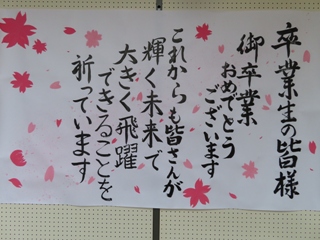 卒業生の皆様
御卒業
おめでとう
ございます
これからも皆さんが
輝く未来で
大きく飛躍
できることを
祈っています